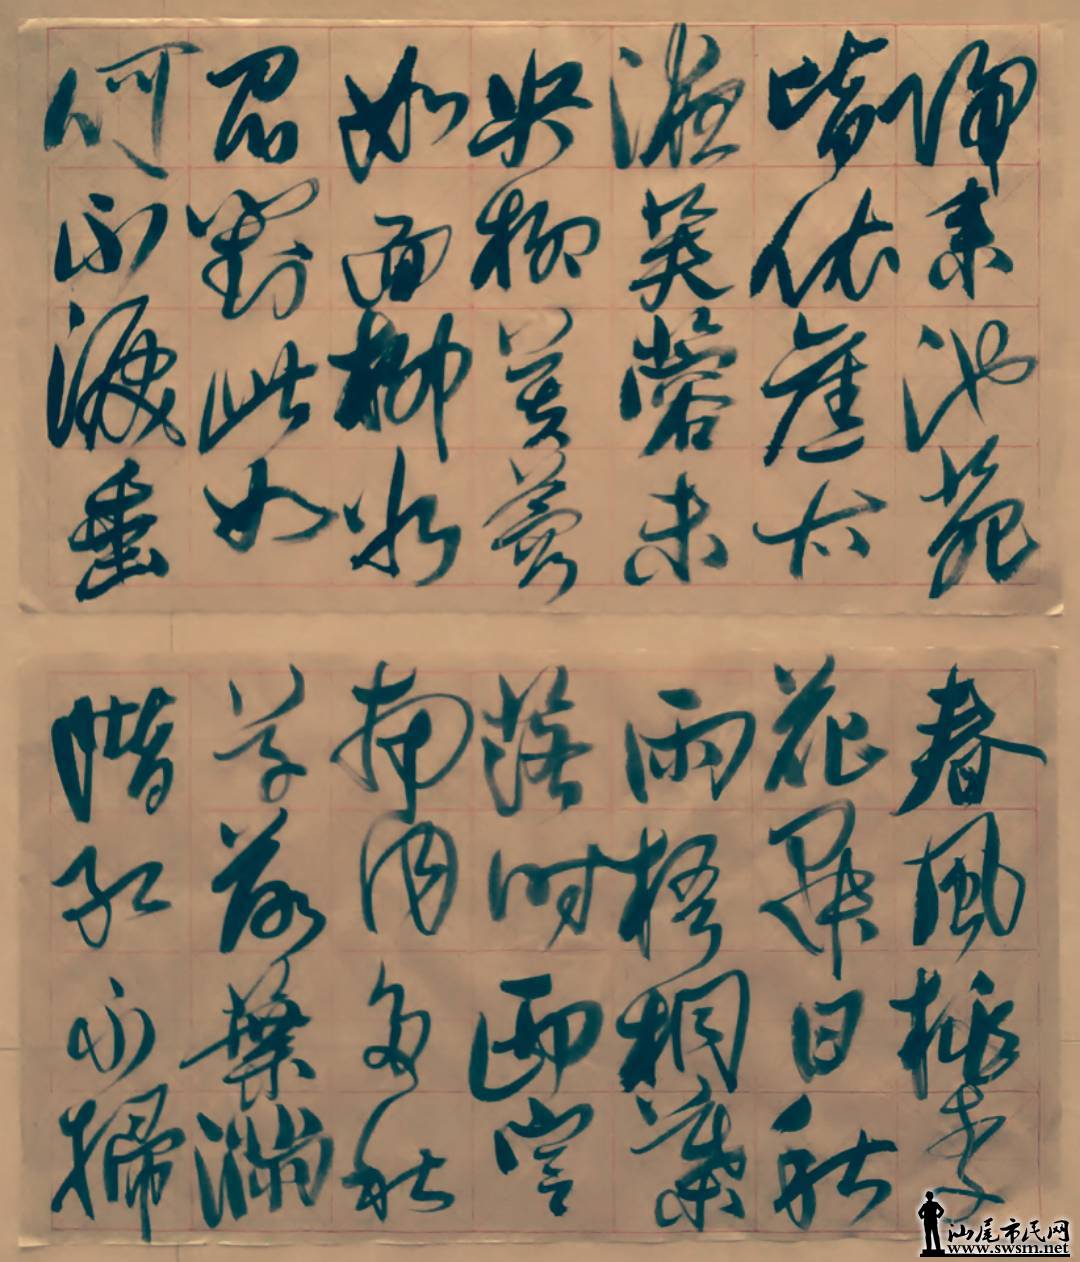 歸来池苑
皆依舊太
液芙蓉未
央柳芙蓉
如面柳水
眉對此如
何不淚垂
春風桃李
花開日秋
雨梧桐葉
落時西宫
南内多秋
草落葉滿
階紅不掃
汕尾市民网
www.swsm.net